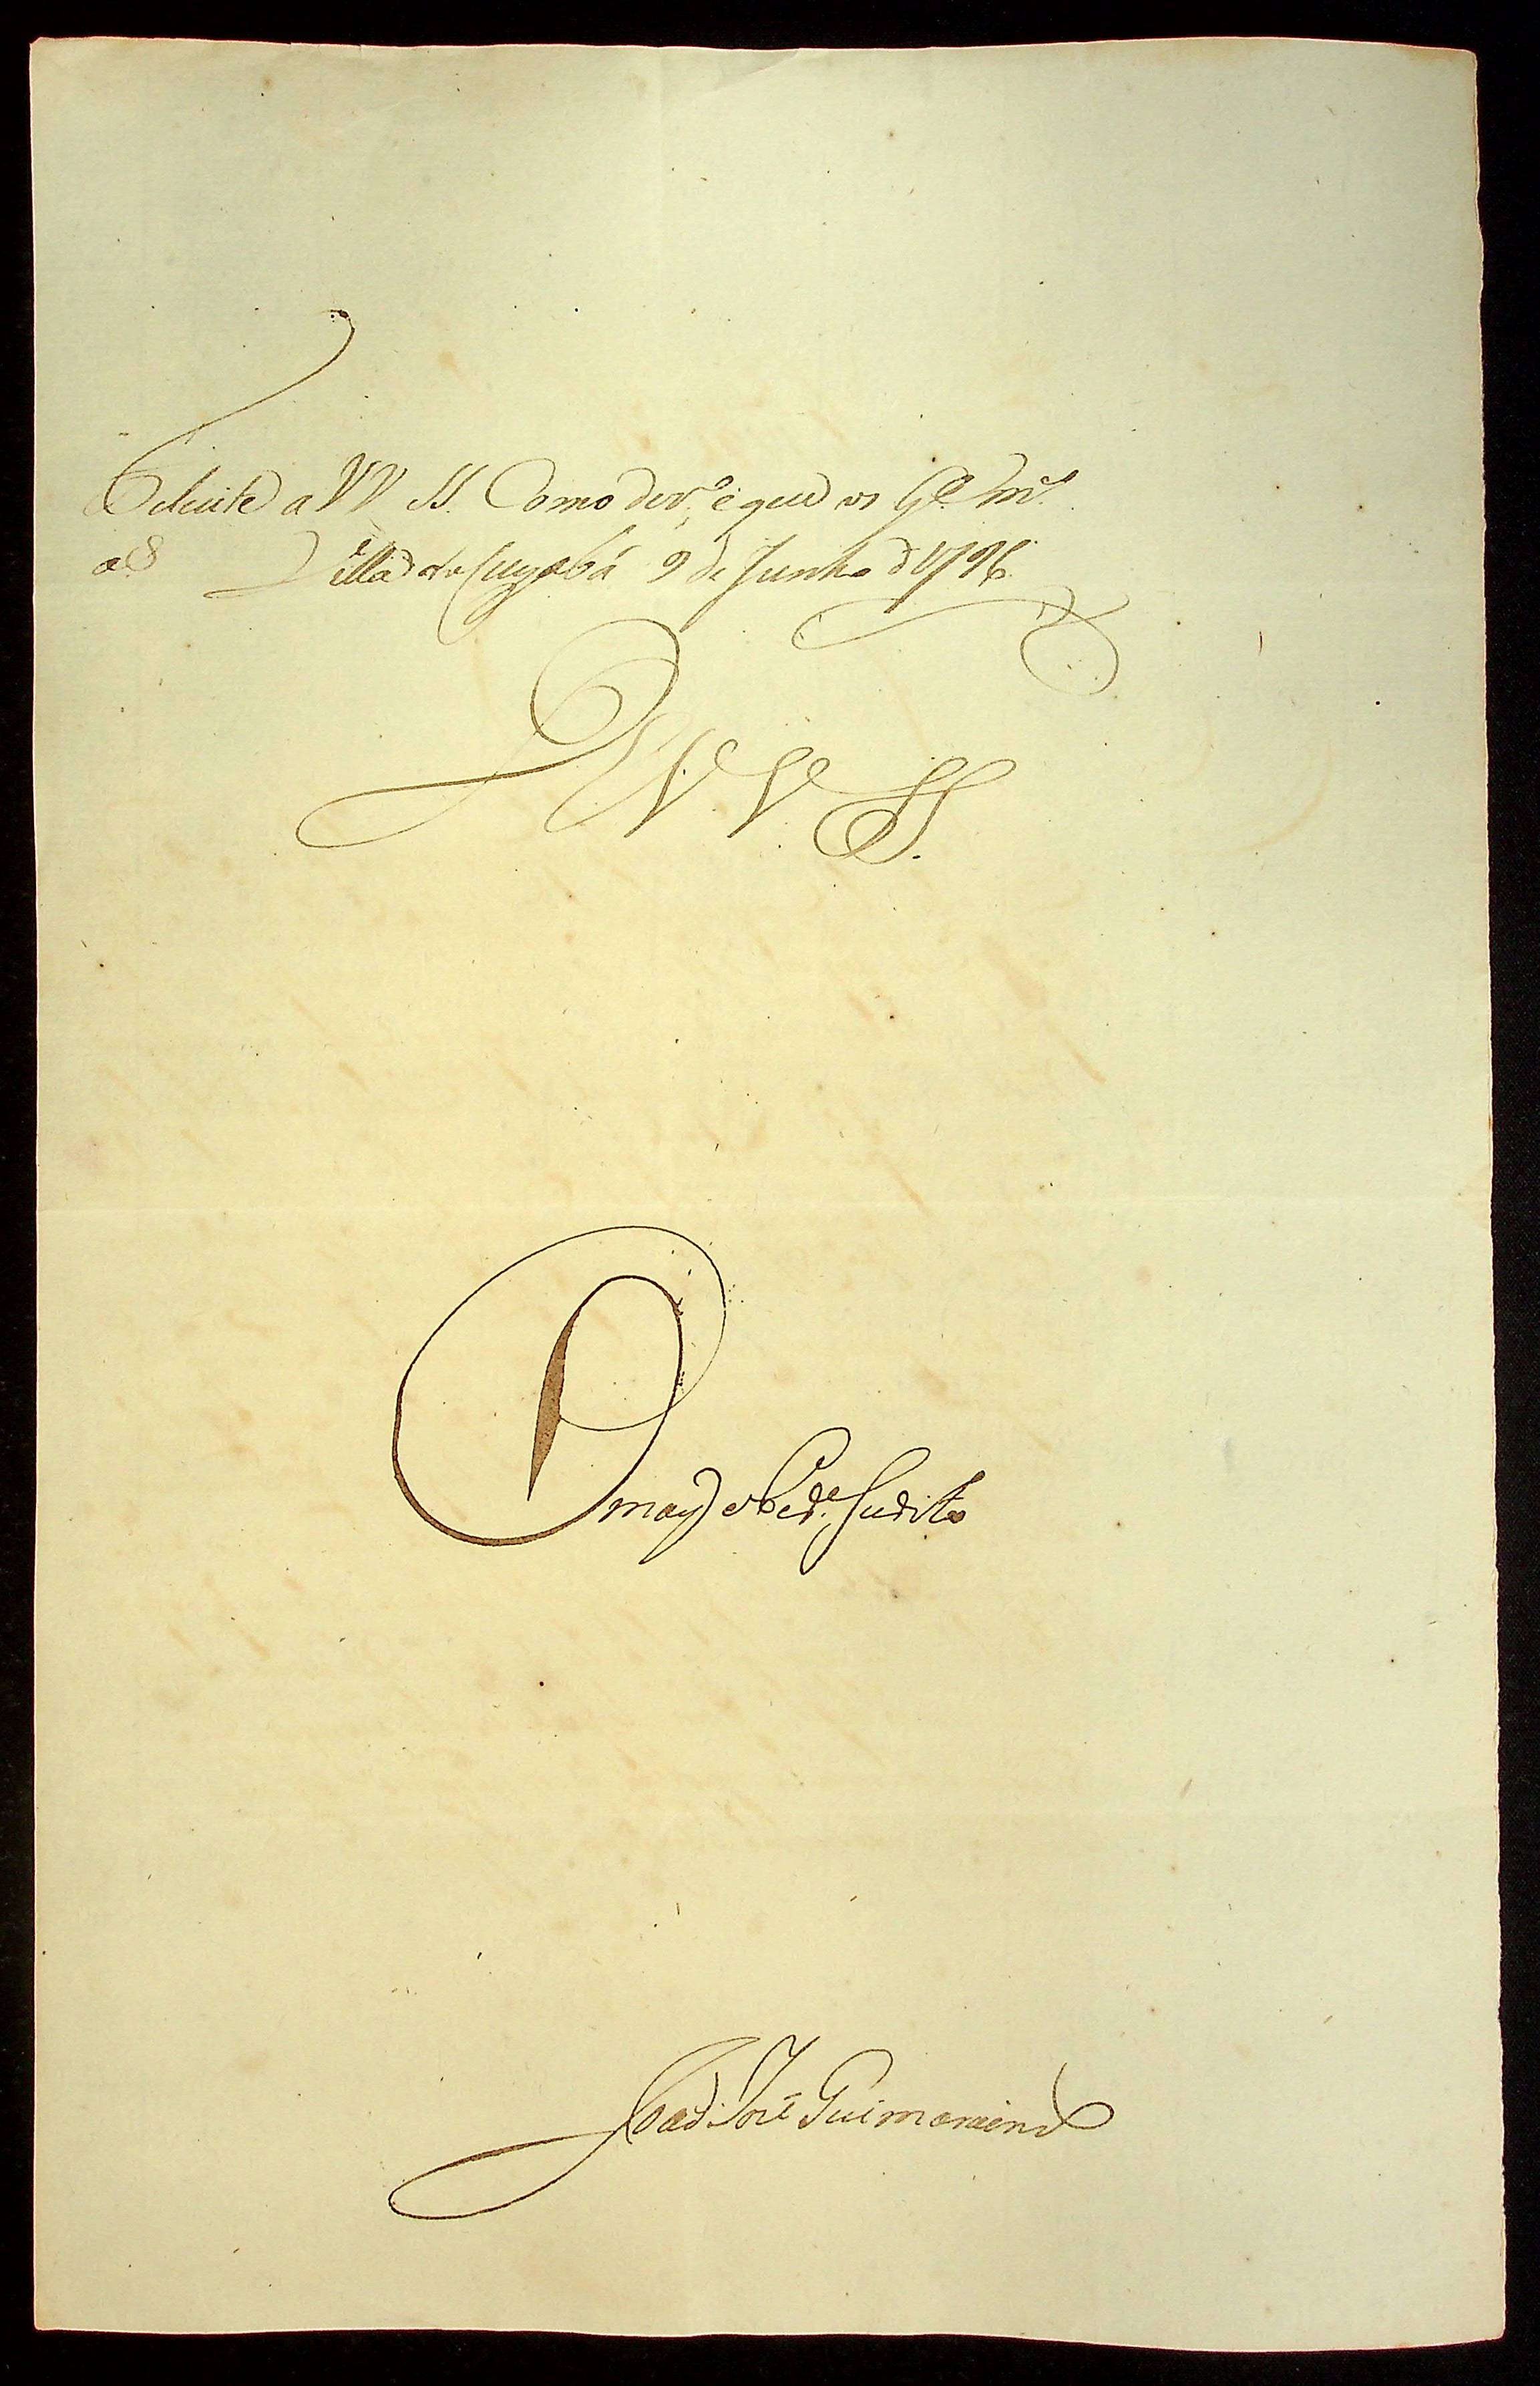 a VV SS. Como dezº e que os Gde ms.
as Villa do Cuyabá 9 de Junho de 1796.
D V. V. SS.
O mayz obede. Sudito
João José Guimaraens